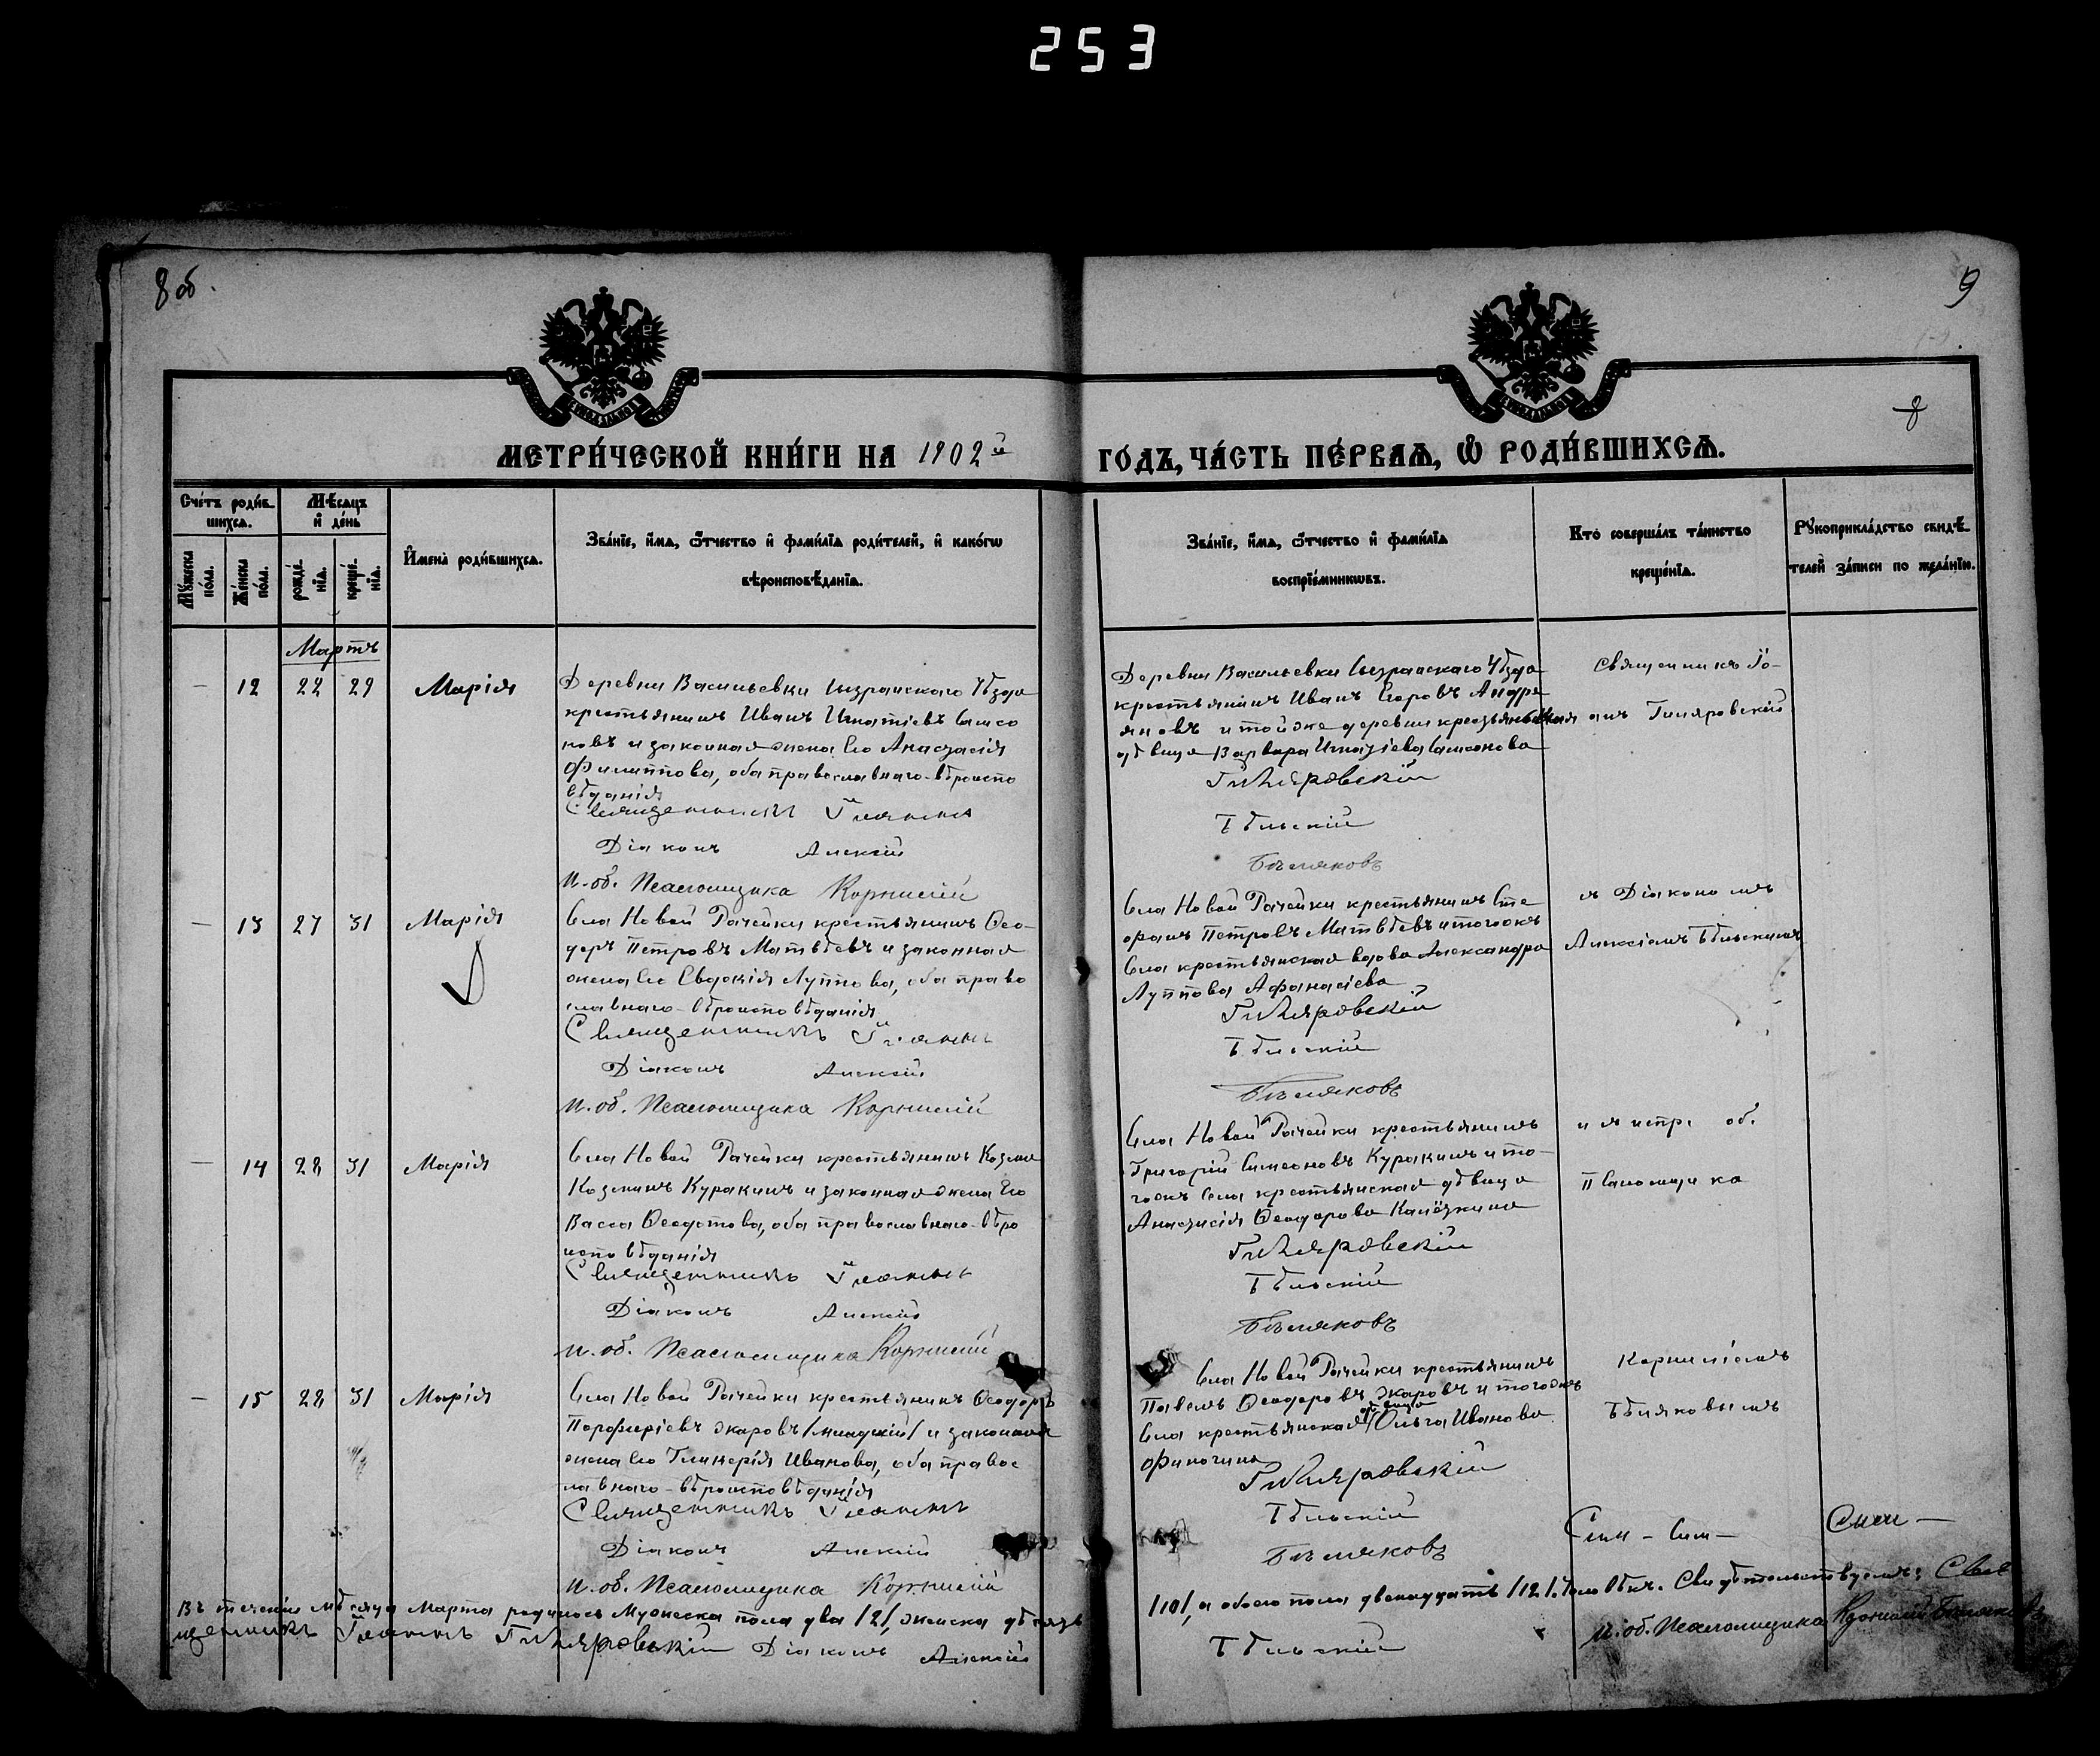 253
8 об.
9
8
МЕТРИ́ЧЕСКОЙ КНИ́ГИ НА 1902й
ГО́ДЪ, ЧА́СТЬ ПЕ́РВАѦ, Ѡ҆ РОДИ́ВШИХСѦ.
Сче́тъ роди́в-
шихсѧ.
Мѣ́сѧцъ
и҆ де́нь
Мꙋ́жеска
по́ла.
Же́нска
по́ла.
рожде́-
нїѧ.
креще́-
нїѧ.
И҆мена̀ роди́вшихсѧ.
Зва́нїе, и҆́мѧ, ѻ҆́тчество и҆ фами́лїѧ роди́телей, и҆ како́гѡ
вѣроисповѣ́данїѧ.
Зва́нїе, и҆́мѧ, ѻ҆́тчество и҆ фами́лїѧ
воспрїе́мникѡвъ.
Кто̀ соверша́лъ та́инство
креще́нїѧ.
Рꙋкоприкла́дство свидѣ́-
телей за́писи по жела́нїю.
Мартъ
— 12 22 29 Марія
Деревни Васильевки Сызранскаго Уѣзда
крестьянинъ Иванъ Игнатіевъ Самсо
новъ и законная жена Его Анастасія
Филиппова, оба православнаго-вѣроиспо
вѣданія
Священникъ Іоаннъ
Діаконъ Алексій
И. об. Псаломщика Корнилій
Деревни Васильевки Сызранскаго Уѣзда
крестьянинъ Иванъ Егоровъ Андре
яновъ и той же деревни крестьянская
дѣвица Варвара Игнатіева Самсонова
Гиляровскій
Бѣльскій
Бѣляковъ
Священникъ Іо-
аннъ Гиляровскій
— 13 27 31 Марія
Села Новой Рачейки крестьянинъ Ѳео-
доръ Петровъ Матвѣевъ и законная
жена Его Евдокія Луппова, оба право
славнаго-вѣроисповѣданія
Священникъ Іоаннъ
Діаконъ Алексій
И. об. Псаломщика Корнилій
Села Новой Рачейки крестьянинъ Сте
фанъ Петровъ Матвѣевъ и тогожъ
Села крестьянская вдова Александра
Луппова Афанасіева
Гиляровскій
Бѣльскій
Бѣляковъ
я Діакономъ
Алексіемъ Бѣльскимъ
— 14 28 31 Марія
Села Новой Рачейки крестьянинъ Козма
Козминъ Куракинъ и законная жена Его
Васса Ѳеодотова, оба православнаго-вѣро
исповѣданія
Священникъ Іоаннъ
Діаконъ Алексій
И. об. Псаломщика Корнилій
Села Новой Рачейки крестьянинъ
Григорій Симеоновъ Куракинъ и то-
гожъ Села крестьянская дѣвица
Анастасія Ѳеодорова
Гиляровскій
Бѣльскій
Бѣляковъ
и об.
Псаломщика
— 15 28 31 Марія
Села Новой Рачейки крестьянинъ Ѳеодоръ
Порфиріевъ Жаровъ /младшій/ и законная
жена Его Гликерія Иванова, оба правос
лавнаго-вѣроисповѣданія
Священникъ Іоаннъ
Діаконъ Алексій
И. об. Псаломщика Корнилій
Села Новой Рачейки крестьянинъ
Павелъ Ѳеодоровъ Жаровъ и тогожъ
Села крестьянская дѣвица Ольга Иванова
Гиляровскій
Бѣльскій
Бѣляковъ
Корниліемъ
Бѣляковымъ
Въ теченіи мѣсяца Марта родилось Мужеска пола два /2/, женска десять
/10/, а обоего пола двенадцать /12/. Свидѣтельствуемъ: Свя
щенникъ Іоаннъ Гиляровскій Діаконъ Алексій
Бѣльскій
И. об. Псаломщика Корнилій Бѣляковъ